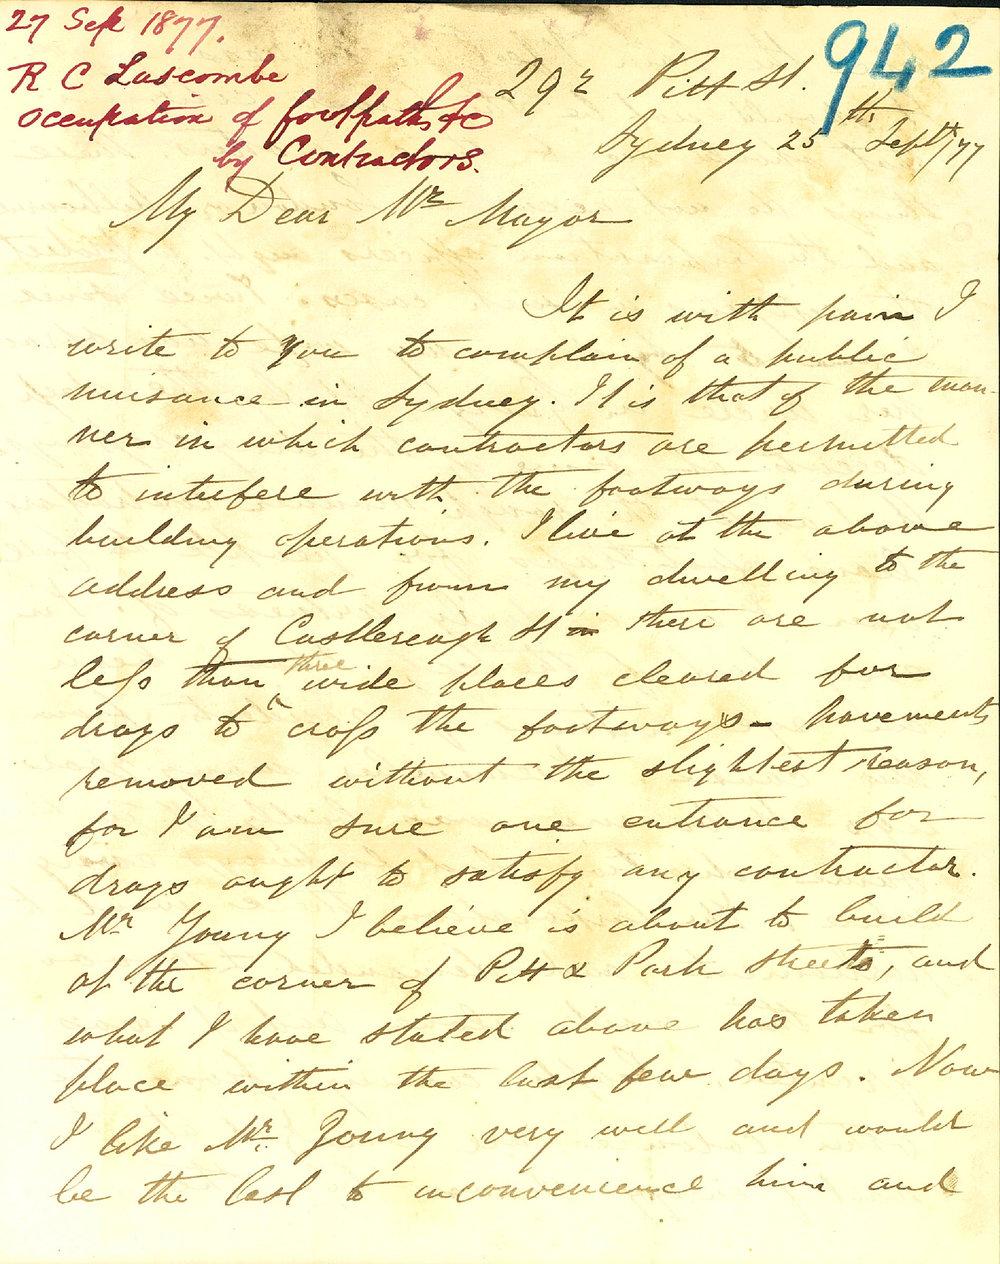 27 Sep 1877.
R C Luscombe
Occupation of footpaths, &c
by Contractors.
942
292 Pitt St.
Sydney 25th Septr/77
My Dear Mr Mayor
It is with pain I
write to you to complain of a public
nuisance in Sydney. It is that of the man-
ner in which contractors are permitted
to interfere with the footways during
building operations. I live at the above
address and from my dwelling to the
corner of Castlereagh St in there are not
less than three wide places cleared for
drays to cross the footways - pavements
removed without the slightest reason,
for I am sure one entrance for
drays ought to satisfy any contractor.
Mr Young I believe is about to build
at the corner of Pitt & Park Streets, and
what I have stated above has taken
place within the last few days. Now
I like Mr. Young very well and would
be the last to inconvenience him and